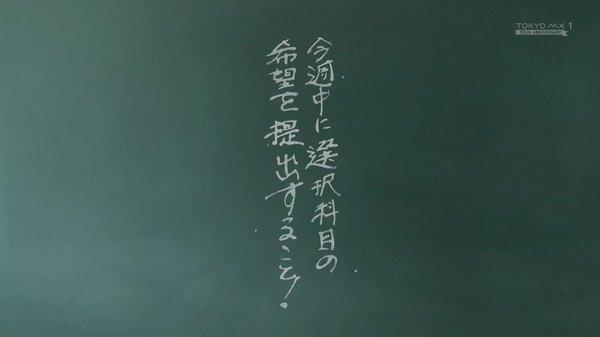 今週中に選択科目の
希望を提出すること!
TOKYO MX 1
30TH ANNIVERSARY